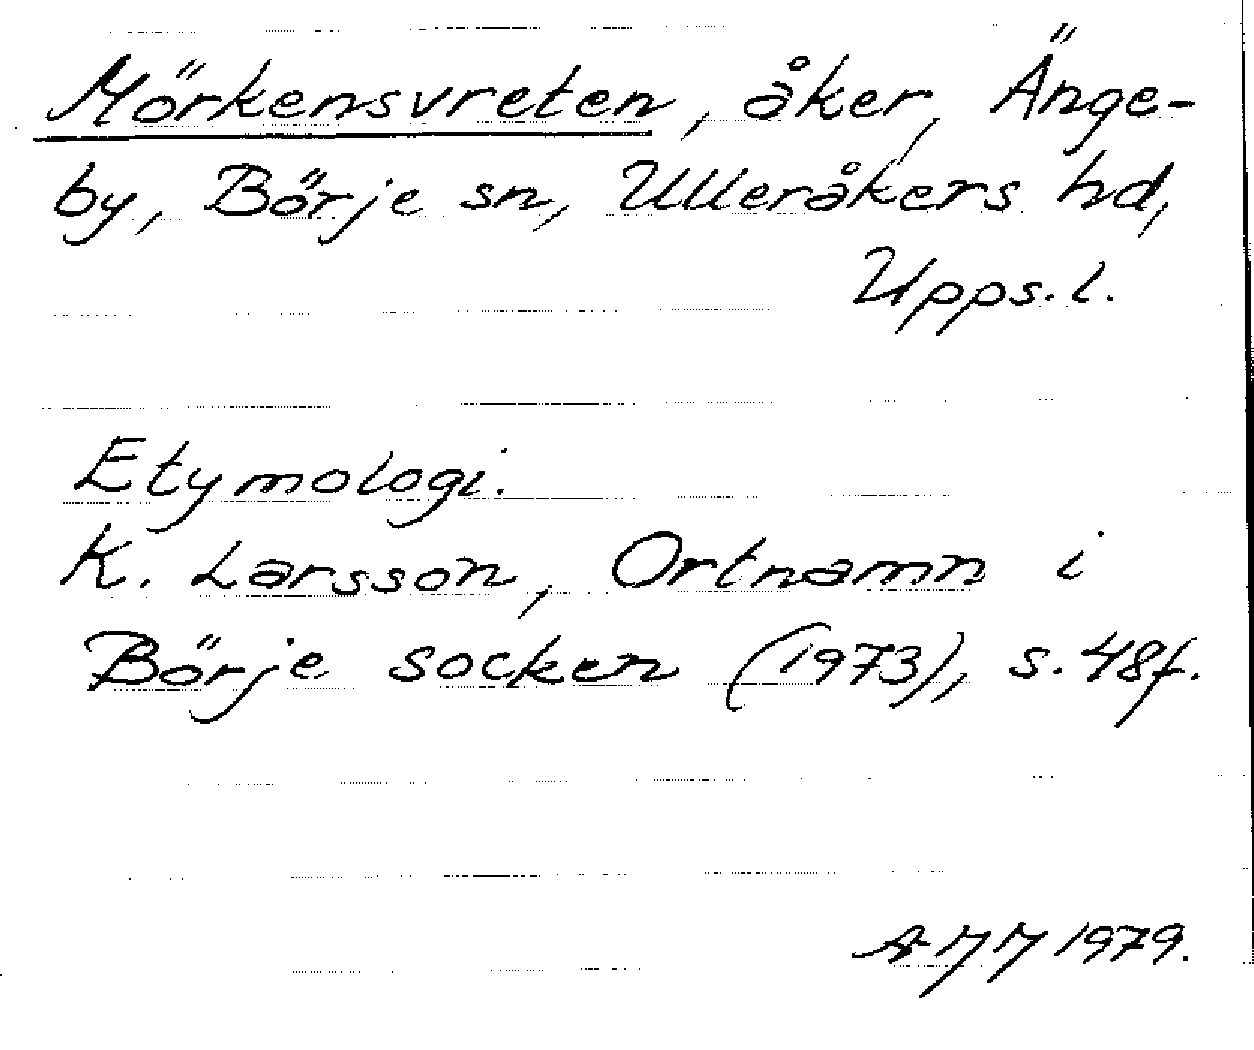 Mörkensvreten, åker, Änge-
by, Börje sn, Ulleråkers hd,
Upps. l.
Etymologi.
K. Larsson, Ortnamn i
Börje socken (1973), s. 48f.
1979.